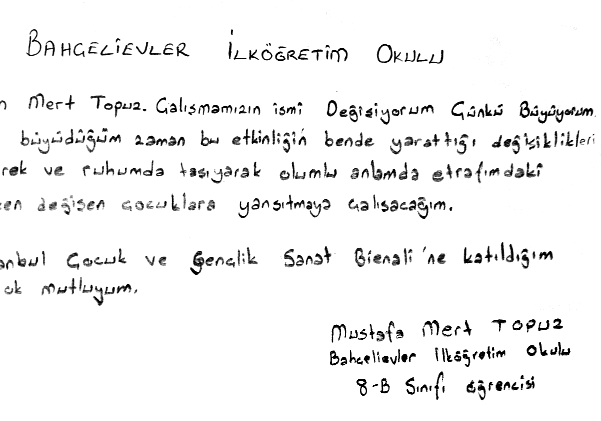 BAHÇELİEVLER İLKÖĞRETİM OKULU
Mert Topuz. Çalışmamızın ismi Değişiyorum Çünkü Büyüyorum.
büyüdüğüm zaman bu etkinliğin bende yarattığı değişiklikleri
ve ruhumda taşıyarak olumlu anlamda etrafımdaki
değişen çocuklara yansıtmaya çalışacağım.
Çocuk ve Gençlik Sanat Bienali'ne katıldığım
mutluyum.
Mustafa Mert TOPUZ
Bahçelievler İlköğretim Okulu
8-B Sınıfı öğrencisi